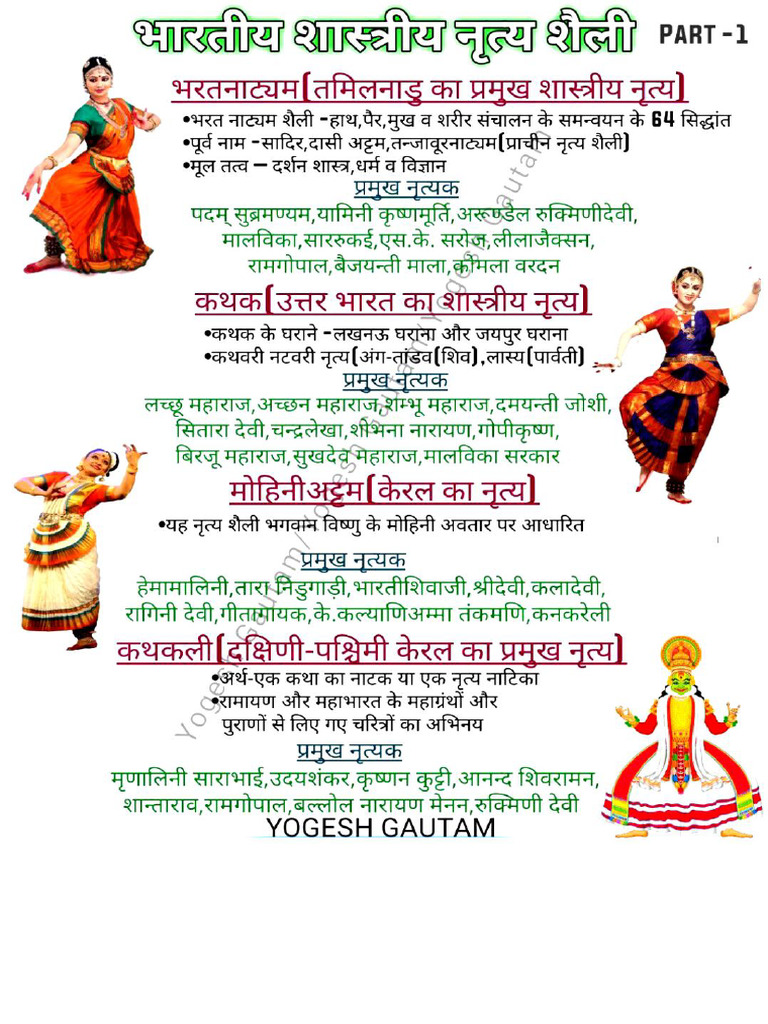 भारतीय शास्त्रीय नृत्य शैली PART -1
भरतनाट्यम(तमिलनाडु का प्रमुख शास्त्रीय नृत्य)
•भरत नाट्यम शैली -हाथ,पैर,मुख व शरीर संचालन के समन्वयन के 64 सिद्धांत
•पूर्व नाम -सादिर,दासी अट्टम,तन्जावूरनाट्यम(प्राचीन नृत्य शैली)
•मूल तत्व – दर्शन शास्त्र,धर्म व विज्ञान
प्रमुख नृत्यक
पदम् सुब्रमण्यम,यामिनी कृष्णमूर्ति,अरूण्डेल रुक्मिणीदेवी,
मालविका,साररुकई,एस.के. सरोज,लीलाजैक्सन,
रामगोपाल,बैजयन्ती माला,कोमला वरदन
कथक(उत्तर भारत का शास्त्रीय नृत्य)
•कथक के घराने -लखनऊ घराना और जयपुर घराना
•कथवरी नटवरी नृत्य(अंग-तांडव(शिव),लास्य(पार्वती)
प्रमुख नृत्यक
लच्छू महाराज,अच्छन महाराज,शम्भू महाराज,दमयन्ती जोशी,
सितारा देवी,चन्द्रलेखा,शोभना नारायण,गोपीकृष्ण,
बिरजू महाराज,सुखदेव महाराज,मालविका सरकार
मोहिनीअट्टम(केरल का नृत्य)
•यह नृत्य शैली भगवान विष्णु के मोहिनी अवतार पर आधारित
प्रमुख नृत्यक
हेमामालिनी,तारा निडुगाड़ी,भारतीशिवाजी,श्रीदेवी,कलादेवी,
रागिनी देवी,गीतागायक,के.कल्याणिअम्मा तंकमणि,कनकरेली
कथकली(दक्षिणी-पश्चिमी केरल का प्रमुख नृत्य)
•अर्थ-एक कथा का नाटक या एक नृत्य नाटिका
•रामायण और महाभारत के महाग्रंथों और
पुराणों से लिए गए चरित्रों का अभिनय
प्रमुख नृत्यक
मृणालिनी साराभाई,उदयशंकर,कृष्णन कुट्टी,आनन्द शिवरामन,
शान्ताराव,रामगोपाल,बल्लोल नारायण मेनन,रुक्मिणी देवी
YOGESH GAUTAM
Yogesh Gautam/Yogesh Gautam/Yogesh Gautam